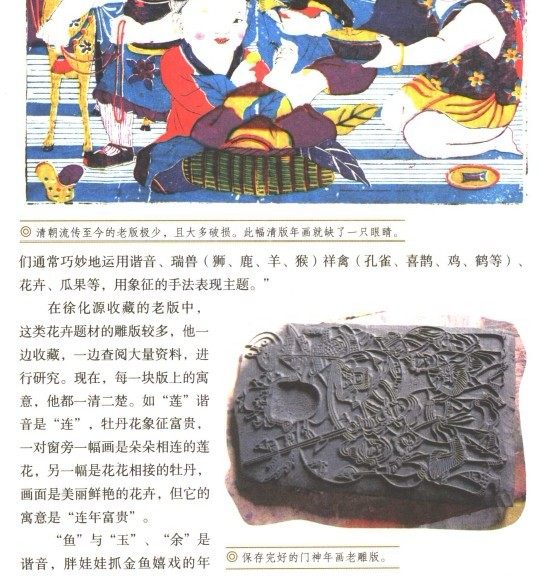 ◎ 清朝流传至今的老版极少，且大多破损。此幅清版年画就缺了一只眼睛。
们通常巧妙地运用谐音、瑞兽（狮、鹿、羊、猴）祥禽（孔雀、喜鹊、鸡、鹤等）、
花卉、瓜果等，用象征的手法表现主题。”
在徐化源收藏的老版中，
这类花卉题材的雕版较多，他一
边收藏，一边查阅大量资料，进
行研究。现在，每一块版上的寓
意，他都一清二楚。如“莲”谐
音是“连”，牡丹花象征富贵，
一对窗旁一幅画是朵朵相连的莲
花，另一幅是花花相接的牡丹，
画面是美丽鲜艳的花卉，但它的
寓意是“连年富贵”。
“鱼”与“玉”、“余”是
谐音，胖娃娃抓金鱼嬉戏的年
◎ 保存完好的门神年画老雕版。